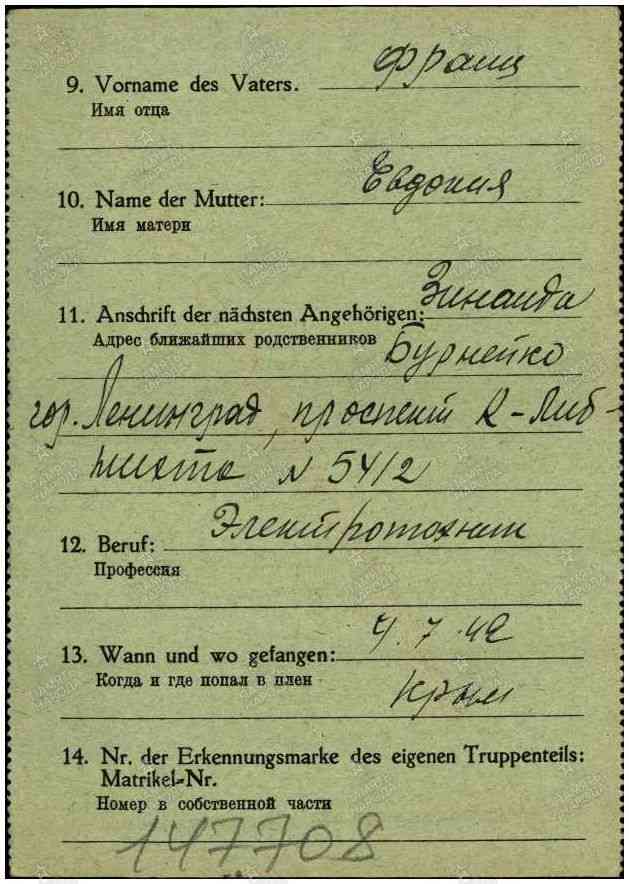 9. Vorname des Vaters. Франц
Имя отца
10. Name der Mutter: Евдокия
Имя матери
11. Anschrift der nächsten Angehörigen: Зинаида
Адрес ближайших родственников Бурнейко
гор. Ленинград, проспект К-Либ-
кнехта N 54/2
12. Beruf: Электротехник
Профессия
13. Wann und wo gefangen: 4.7.42
Когда и где попал в плен Крым
14. Nr. der Erkennungsmarke des eigenen Truppenteils:
Matrikel-Nr.
Номер в собственной части
147708